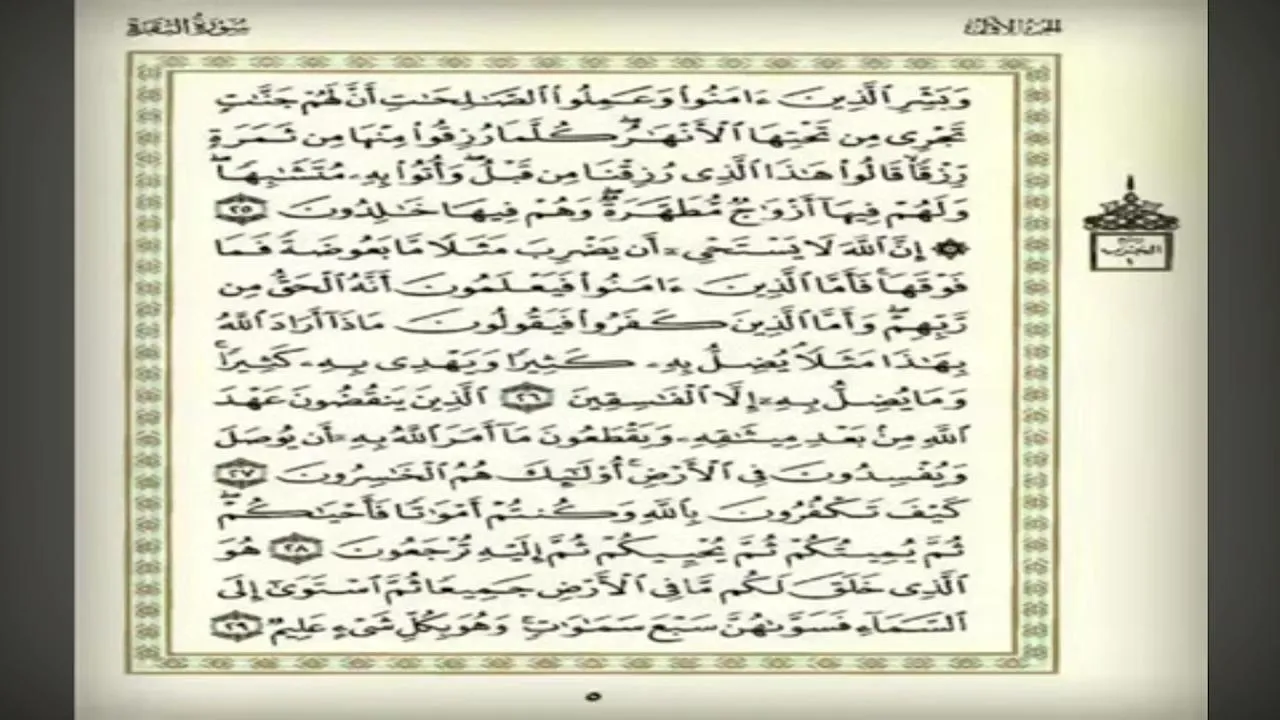 الجزء الأول
سورة البقرة
وَبَشِّرِ ٱلَّذِينَ ءَامَنُوا۟ وَعَمِلُوا۟ ٱلصَّـٰلِحَـٰتِ أَنَّ لَهُمْ جَنَّـٰتٍ
تَجْرِى مِن تَحْتِهَا ٱلْأَنْهَـٰرُ ۖ كُلَّمَا رُزِقُوا۟ مِنْهَا مِن ثَمَرَةٍ
رِّزْقًا ۙ قَالُوا۟ هَـٰذَا ٱلَّذِى رُزِقْنَا مِن قَبْلُ ۖ وَأُتُوا۟ بِهِۦ مُتَشَـٰبِهًا ۖ
وَلَهُمْ فِيهَآ أَزْوَٰجٌ مُّطَهَّرَةٌ ۖ وَهُمْ فِيهَا خَـٰلِدُونَ ٢٥
۞ إِنَّ ٱللَّهَ لَا يَسْتَحْىِۦٓ أَن يَضْرِبَ مَثَلًا مَّا بَعُوضَةً فَمَا
فَوْقَهَا ۚ فَأَمَّا ٱلَّذِينَ ءَامَنُوا۟ فَيَعْلَمُونَ أَنَّهُ ٱلْحَقُّ مِن
رَّبِّهِمْ ۖ وَأَمَّا ٱلَّذِينَ كَفَرُوا۟ فَيَقُولُونَ مَاذَآ أَرَادَ ٱللَّهُ
بِهَـٰذَا مَثَلًا ۘ يُضِلُّ بِهِۦ كَثِيرًا وَيَهْدِى بِهِۦ كَثِيرًا ۚ
وَمَا يُضِلُّ بِهِۦٓ إِلَّا ٱلْفَـٰسِقِينَ ٢٦ ٱلَّذِينَ يَنقُضُونَ عَهْدَ
ٱللَّهِ مِنۢ بَعْدِ مِيثَـٰقِهِۦ وَيَقْطَعُونَ مَآ أَمَرَ ٱللَّهُ بِهِۦٓ أَن يُوصَلَ
وَيُفْسِدُونَ فِى ٱلْأَرْضِ ۚ أُو۟لَـٰٓئِكَ هُمُ ٱلْخَـٰسِرُونَ ٢٧
كَيْفَ تَكْفُرُونَ بِٱللَّهِ وَكُنتُمْ أَمْوَٰتًا فَأَحْيَـٰكُمْ ۖ
ثُمَّ يُمِيتُكُمْ ثُمَّ يُحْيِيكُمْ ثُمَّ إِلَيْهِ تُرْجَعُونَ ٢٨ هُوَ
ٱلَّذِى خَلَقَ لَكُم مَّا فِى ٱلْأَرْضِ جَمِيعًا ثُمَّ ٱسْتَوَىٰٓ إِلَى
ٱلسَّمَآءِ فَسَوَّىٰهُنَّ سَبْعَ سَمَـٰوَٰتٍ ۚ وَهُوَ بِكُلِّ شَىْءٍ عَلِيمٌ ٢٩
الحزب
١
٥